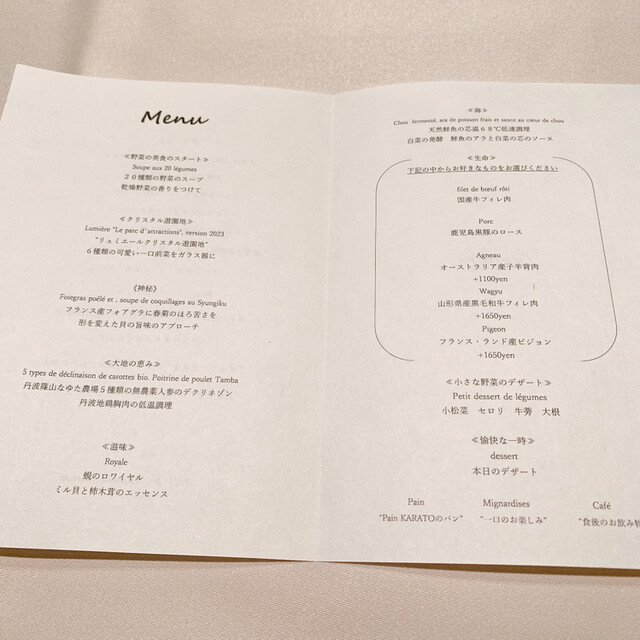 Menu
≪野菜の美食のスタート≫
Soupe aux 20 légumes
２０種類の野菜のスープ
乾燥野菜の香りをつけて
≪クリスタル遊園地≫
Lumière "Le parc d'attractions", version 2023
"リュミエールクリスタル遊園地"
６種類の可愛い一口前菜をガラス器に
《神秘》
Foiegras poêlé et , soupe de coquillages au Syungiku
フランス産フォアグラに春菊のほろ苦さを
形を変えた貝の旨味のアプローチ
≪大地の恵み≫
5 types de déclinaison de carottes bio. Poitrine de poulet Tamba
丹波篠山なゆた農場５種類の無農薬人参のデクリネゾン
丹波地鶏胸肉の低温調理
≪滋味≫
Royale
蜆のロワイヤル
ミル貝と柿木茸のエッセンス
≪海≫
Chou fermenté, ara de poisson frais et sauce au cœur de chou
天然鮮魚の芯温６８℃低速調理
白菜の発酵 鮮魚のアラと白菜の芯のソース
≪生命≫
下記の中からお好きなものをお選びください
filet de bœuf rôti
国産牛フィレ肉
Porc
鹿児島黒豚のロース
Agneau
オーストラリア産子羊背肉
+1100yen
Wagyu
山形県産黒毛和牛フィレ肉
+1650yen
Pigeon
フランス・ランド産ピジョン
+1650yen
≪小さな野菜のデザート≫
Petit dessert de légumes
小松菜 セロリ 牛蒡 大根
≪愉快な一時≫
dessert
本日のデザート
Pain Mignardises Café
"Pain KARATOのパン" "一口のお楽しみ" "食後のお飲み物